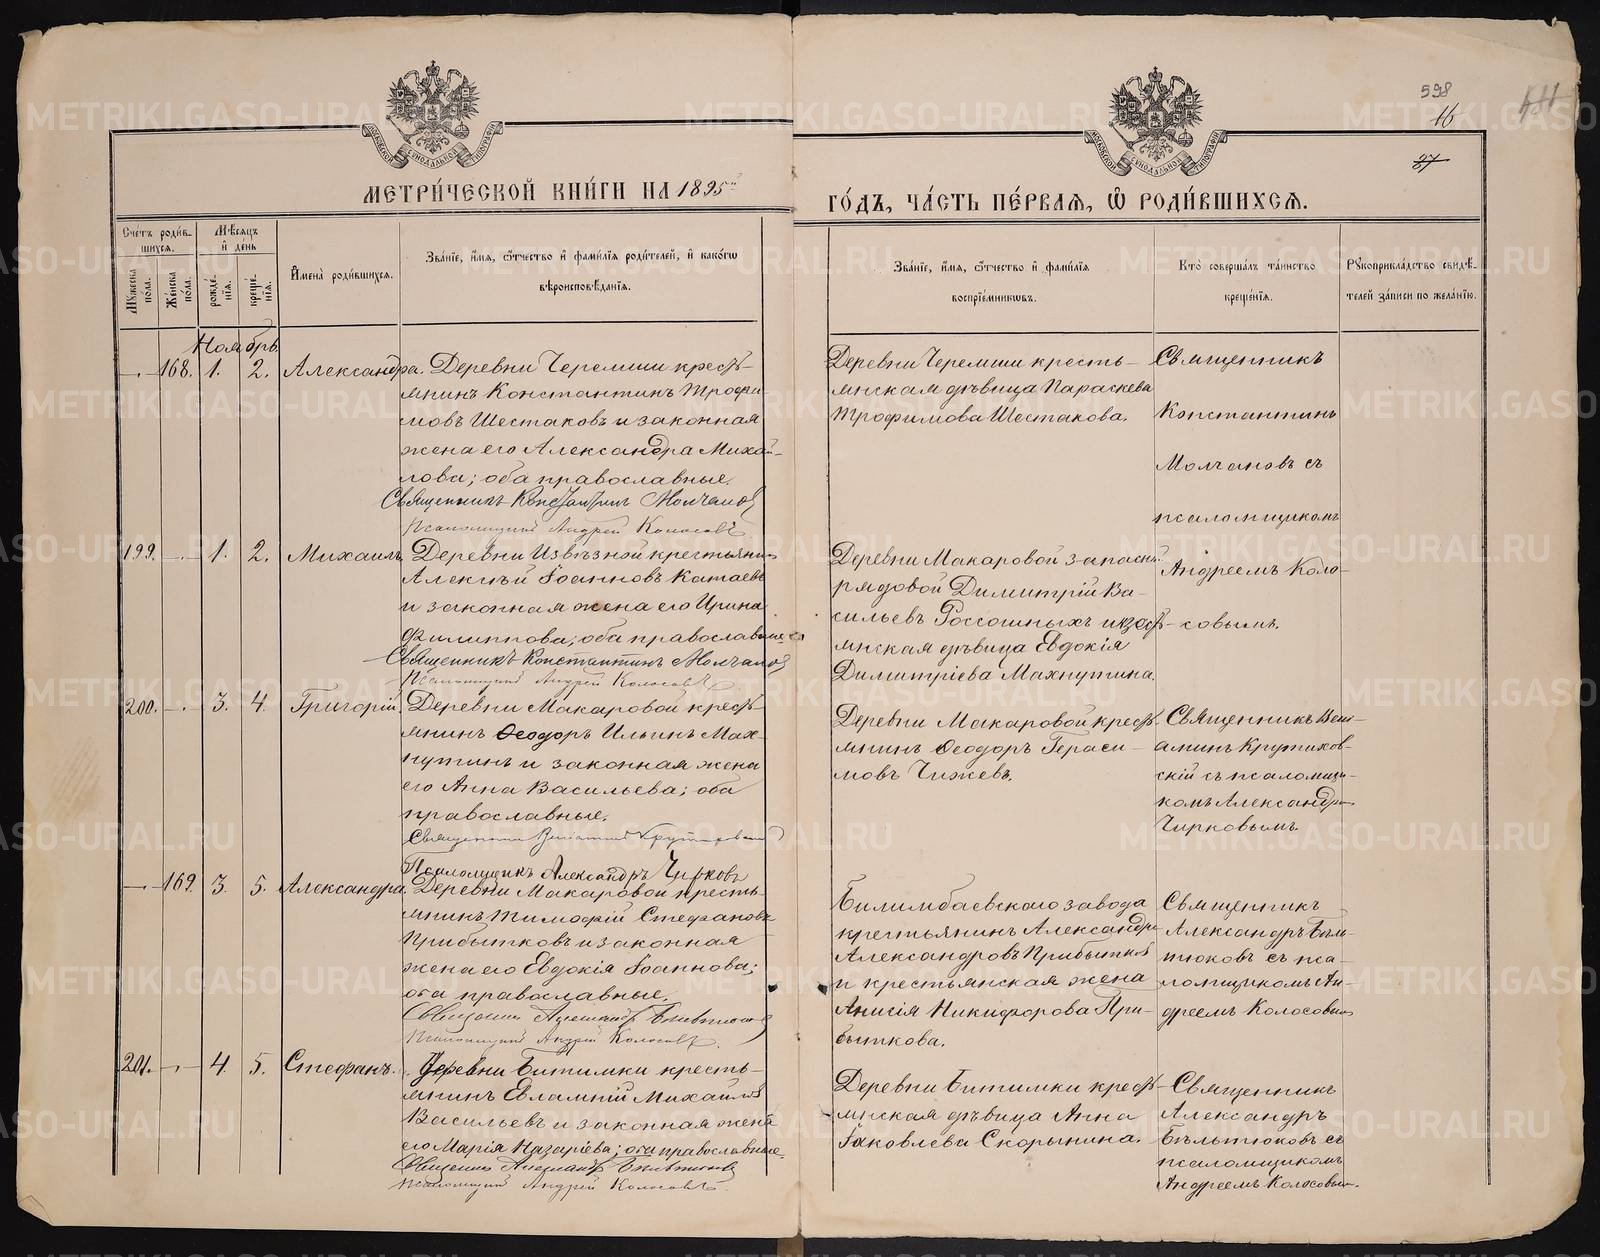 598
16
27
МЕТРИ́ЧЕСКОЙ КНИ́ГИ НА 1895й
ГО́ДЪ, ЧА́СТЬ ПЕ́РВАѦ, Ѡ҆ РОДИ́ВШИХСѦ.
Сче́тъ роди́в-
шихсѧ.
Мꙋ́жеска по́ла.
Же́нска по́ла.
Мѣ́сѧцъ
и҆ де́нь
рожде́-
нїѧ.
креще́-
нїѧ.
И҆мена̀ роди́вшихсѧ.
Зва́нїе, и҆́мѧ, ѻ҆́тчество и҆ фами́лїѧ роди́телей, и҆ како́гѡ
вѣроисповѣ́данїѧ.
Зва́нїе, и҆́мѧ, ѻ҆́тчество и҆ фами́лїѧ
воспрїе́мникѡвъ.
Кто̀ соверша́лъ та́инство
креще́нїѧ.
Рꙋкоприкла́дство свидѣ́-
телей за́писи по жела́нїю.
Ноябрь.
168. 1. 2. Александра. Деревни Черемши кресть-
янинъ Константинъ Трофи
мовъ Шестаковъ и законная
жена его Александра Михай-
лова; оба православные.
Священникъ Константинъ Молчановъ
Псаломщикъ Андрей Колосовъ
Деревни Черемши кресть-
янская дѣвица Параскева
Трофимова Шестакова.
Священникъ
Константинъ
Молчановъ съ
псаломщикомъ
Андреемъ Коло-
совымъ.
199. 1. 2. Михаилъ. Деревни Извѣзной крестьянинъ
Алексѣй Іоанновъ Катаевъ
и законная жена его Ирина
Филиппова; оба православные
Священникъ Константинъ Молчановъ
Псаломщикъ Андрей Колосовъ
Деревни Макаровой запасн.
рядовой Димитрій Ва-
сильевъ Россошныхъ и крест-
янская дѣвица Евдокія
Димитріева Махнутина.
200. 3. 4. Григорій. Деревни Макаровой кресть-
янинъ Ѳеодоръ Ильинъ Мах-
нутинъ и законная жена
его Анна Васильева; оба
православные.
Священникъ Веніаминъ Крутиховскій
Псаломщикъ Александръ Чирковъ
Деревни Макаровой кресть-
янинъ Ѳеодоръ Гераси-
мовъ Чижевъ.
Священникъ Вені-
аминъ Крутихов-
скій съ псаломщи-
комъ Александромъ
Чирковымъ.
169. 3. 5. Александра. Деревни Макаровой кресть-
янинъ Тимофій Стефановъ
Прибытковъ и законная
жена его Евдокія Іоаннова;
оба православные.
Священникъ Александръ Бѣльтюковъ
Псаломщикъ Андрей Колосовъ.
Билимбаевскаго завода
крестьянинъ Александръ
Александровъ Прибытковъ
и крестьянская жена
Анисія Никифорова При-
быткова.
Священникъ
Александръ Бѣль-
тюковъ съ пса-
ломщикомъ Ан-
дреемъ Колосовымъ
201. 4. 5. Стефанъ. Деревни Битимки кресть-
янинъ Евлампій Михайловъ
Васильевъ и законная жена
его Марія Назаріева; оба православные.
Священникъ Александръ Бѣльтюковъ
Псаломщикъ Андрей Колосовъ.
Деревни Битимки кресть-
янская дѣвица Анна
Іаковлева Скорынина.
Священникъ
Александръ
Бѣльтюковъ съ
псаломщикомъ
Андреемъ Колосовым.